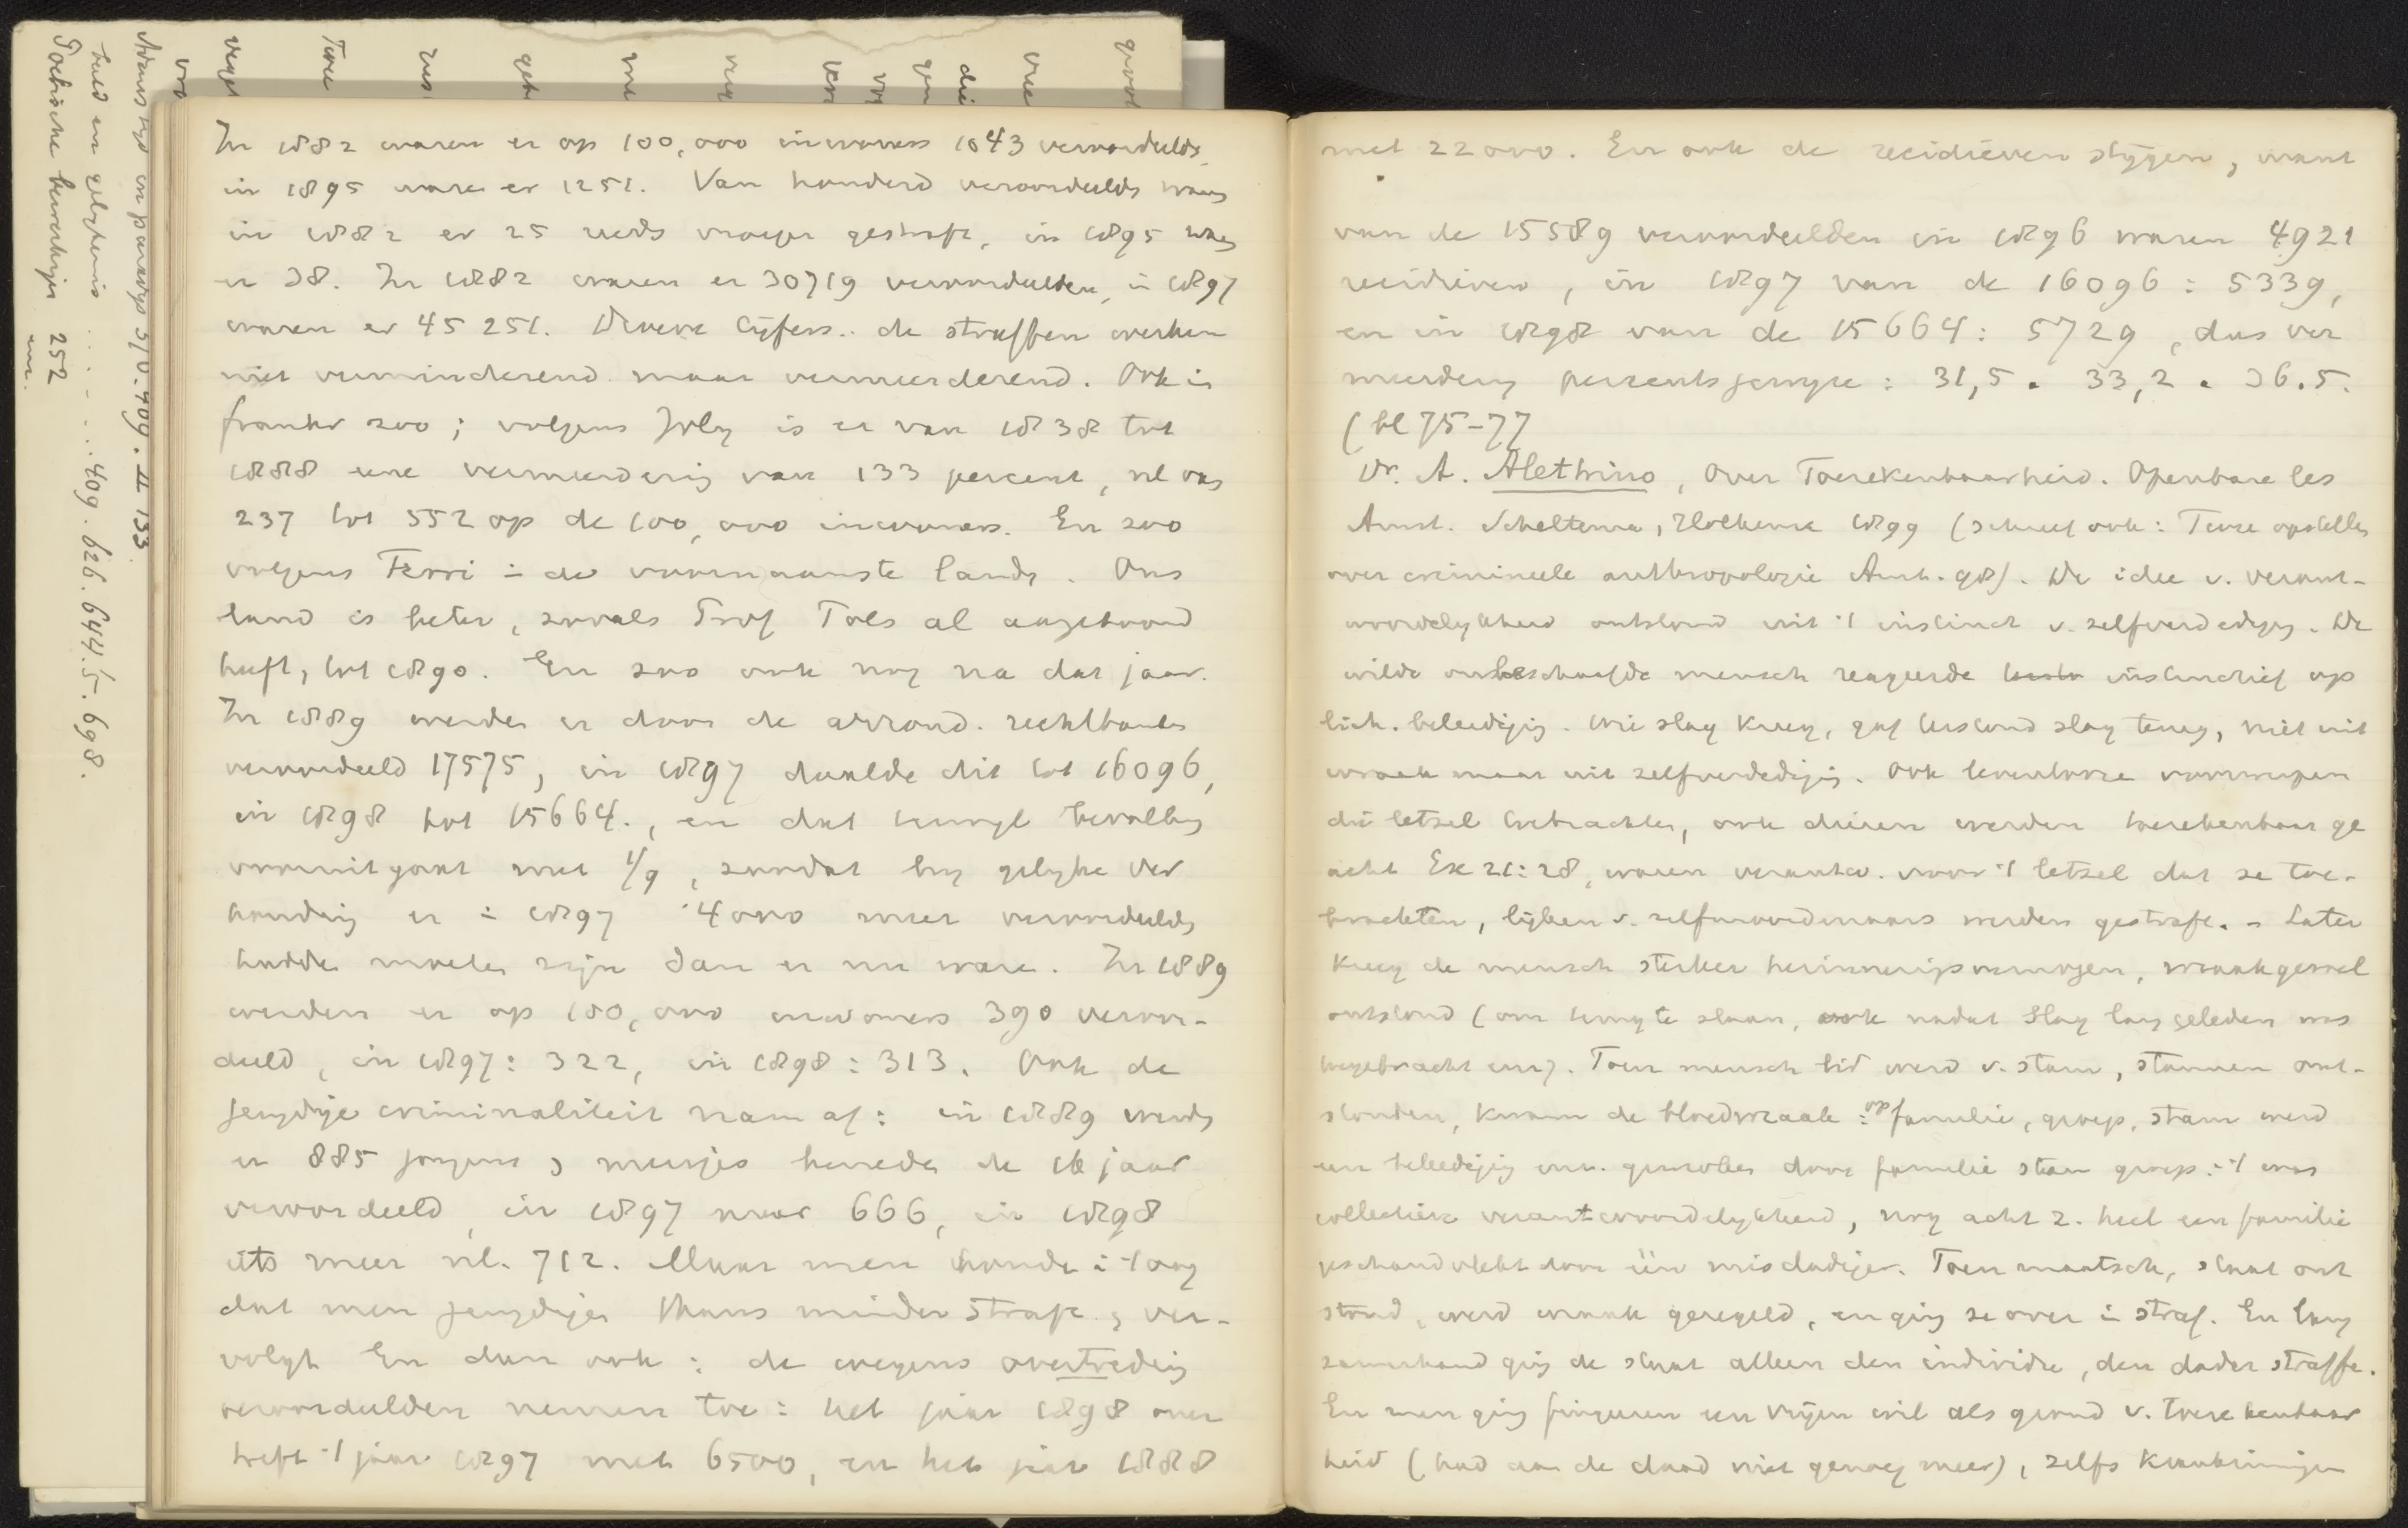 In 1882 waren er op 100,000 inwoners 1043 veroordeelde,
in 1895 waren er 1251. Van honderd veroordeelde waren
in 1882 er 25 reeds vroeger gestraft, in 1895 waren
er 38. In 1882 waren er 30719 veroordeelden, in 1897
waren er 45251. Droeve cijfers.. de straffen werken
niet verminderend maar vermeerderend. Ook in
frankr zoo; volgens Joly is er van 1838 tot
1888 eene vermeerdering van 133 percent, nl van
237 tot 552 op de 100,000 inwoners. En zoo
volgens Ferri in de voornaamste landen. Ons
land is beter, zooals Prof Tols al aangetoond
heeft, tot 1890. En zoo ook nog na dat jaar.
In 1889 werden er door de arrond. rechtbanken
veroordeeld 17575, in 1897 daalde dit tot 16096,
in 1898 tot 15664., en dat terwijl bevolking
vooruitgaat met 1/9, zoodat bij gelijke ver
houding er in 1897 4000 meer veroordeelde
hadden moeten zijn dan er nu waren. In 1889
werden er op 100,000 inwoners 390 veroor-
deeld, in 1897: 322, in 1898: 313. Ook de
jeugdige criminaliteit nam af: in 1889 werden
er 885 jongens en meisjes beneden de 16 jaar
veroordeeld, in 1897 maar 666, in 1898
iets meer nl. 712. Maar men houde in 't oog
dat men jeugdigen thans minder straft en ver-
volgt En dan ook: de wegens overtreding
veroordeelden nemen toe: het jaar 1898 over
treft 't jaar 1897 met 6500, en het jaar 1888
met 22000. En ook de recidieven stijgen, want
van de 15589 veroordeelden in 1896 waren 4921
recidieven, in 1897 van de 16096: 5339,
en in 1898 van de 15664: 5729, dus ver
meerdering percentsgewijze: 31,5. 33,2. 36.5.
(bl 75-77
Dr. A. Alethrino, Over Toerekenbaarheid. Openbare les
Amst. Scheltema, Holkema 1899 (schreef ook: Twee opstellen
over crimineele anthropologie Amst. 98). De idee v. verant-
woordelijkheid ontstond uit 't instinct v. zelfverdediging. De
wilde onbeschaafde mensch reageerde instinctief op
lich. beleediging. Wie slag kreeg, gaf terstond slag terug, niet uit
wraak maar uit zelfverdediging. Ook levenlooze voorwerpen
die letsel toebrachten, ook dieren werden toerekenbaar ge
acht Ex 21:28, waren verantw. voor 't letsel dat ze toe-
brachten, lijken v. zelfmoordenaars werden gestraft. - Later
kreeg de mensch sterker herinneringsvermogen, wraakgevoel
ontstond (om terug te slaan, ook nadat slag lang geleden was
toegebracht enz). Toen mensch lid werd v. stam, stammen ont-
stonden, kwam de bloedwraak: op familie, groep, stam werd
een beleediging enz. gewroken door familie stam groep: 't was
collectieve verantwoordelijkheid, nog acht z. heel een familie
geschandvlekt door één misdadiger. Toen maatsch, staat ont
stond, werd wraak geregeld, en ging ze over in straf. En lang
zamerhand ging de staat alleen den individu, den dader straffen.
En men ging fingeeren een vrijen wil als grond v. toerekenbaar
heid (had aan de daad niet genoeg meer), zelfs krankzinnigen
Adams tijd en paradijs 510. 409. II 133
beeld en gelijkenis ..... 409. 626. 644.5. 698.
Poëtische 252
enz.